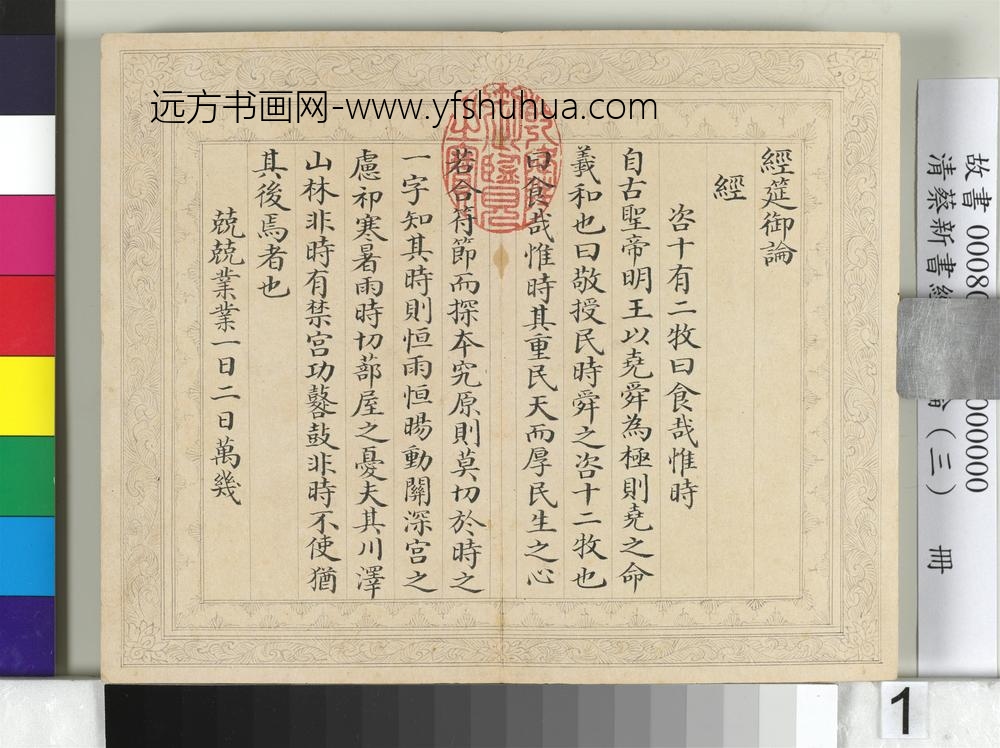 远方书画网-www.yfshuhua.com
經筵御論
經
咨十有二牧曰食哉惟時
自古聖帝明王以堯舜為極則堯之命
羲和也曰敬授民時舜之咨十二牧也
曰食哉惟時其重民天而厚民生之心
若合符節而探本究原則莫切於時之
一字知其時則恒雨恒暘動關深宮之
慮祁寒暑雨時切蔀屋之憂夫其川澤
山林非時有禁宮功鼛鼓非時不使猶
其後焉者也
兢兢業業一日二日萬幾
故書 0008
00000000
清蔡新書經
(三) 冊
1